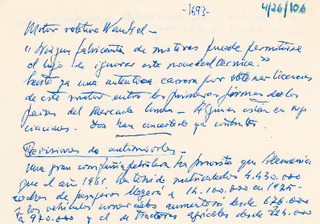 -1693-
4/26/106
Motor rotativo Wankel -
"Ningun fabricante de motores puede permitirse
el lujo de ignorar esta novedad tecnica"
Existe ya una autentica carrera por obtener licencias
de este motor entre las primeras firmas de los
paises del Mercado Comun - Algunas estan en nego-
ciaciones. Dos han concertado ya contratos
Previsiones de automoviles -
Una gran compañia petrolera ha previsto que Alemania
que el año 1961 ha tenido matriculados 4.430.000
coches de pasajeros llegará a 14.100.000 en 1975 -
Los vehiculos comerciales aumentarán desde 626.000
a 970.000 y el de tractores agricolas desde 724.000